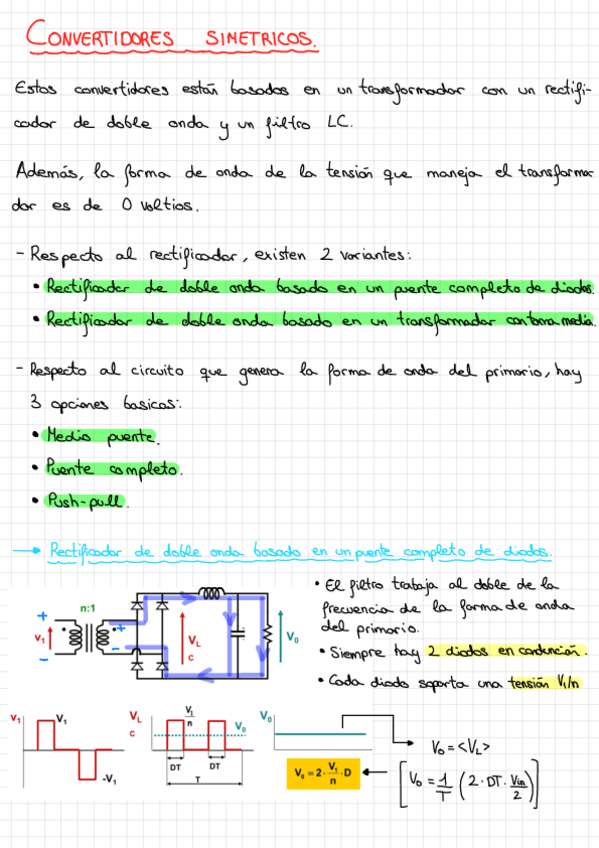 CONVERTIDORES SIMETRICOS.
Estos convertidores están basados en un transformador con un rectifi-
cador de doble onda y un filtro LC.
Además, la forma de onda de la tensión que maneja el transforma
dor es de 0 voltios.
- Respecto al rectificador, existen 2 variantes:
• Rectificador de doble onda basado en un puente completo de diodos.
• Rectificador de doble onda basado en un transformador con toma media.
- Respecto al circuito que genera la forma de onda del primario, hay
3 opciones basicas:
• Medio puente.
• Puente completo.
• Push-pull.
→ Rectificador de doble onda basado en un puente completo de diodos.
n:1
+ V1 -
+ -
VL
C
V0
• El filtro trabaja al doble de la
frecuencia de la forma de onda
del primario.
• Siempre hay 2 diodos en conducción.
• Cada diodo soporta una tensión V1/n
V1 V1 -V1
VL
C
V1/n
V0
DT DT
T
V0
V0 = 2·V1/n·D
V0 = <VL>
[V0 = 1/T (2·DT·Vin/2)]